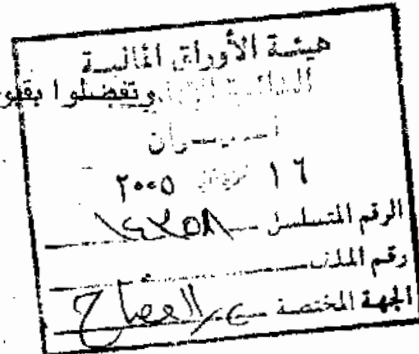 هيئة الأوراق المالية
وتفضلوا بقبو
الديـــوان
١٦ حزيران ٢٠٠٥
الرقم المتسلسل ١٤٢٥٨
رقم الملف
الجهة المختصة الافصاح